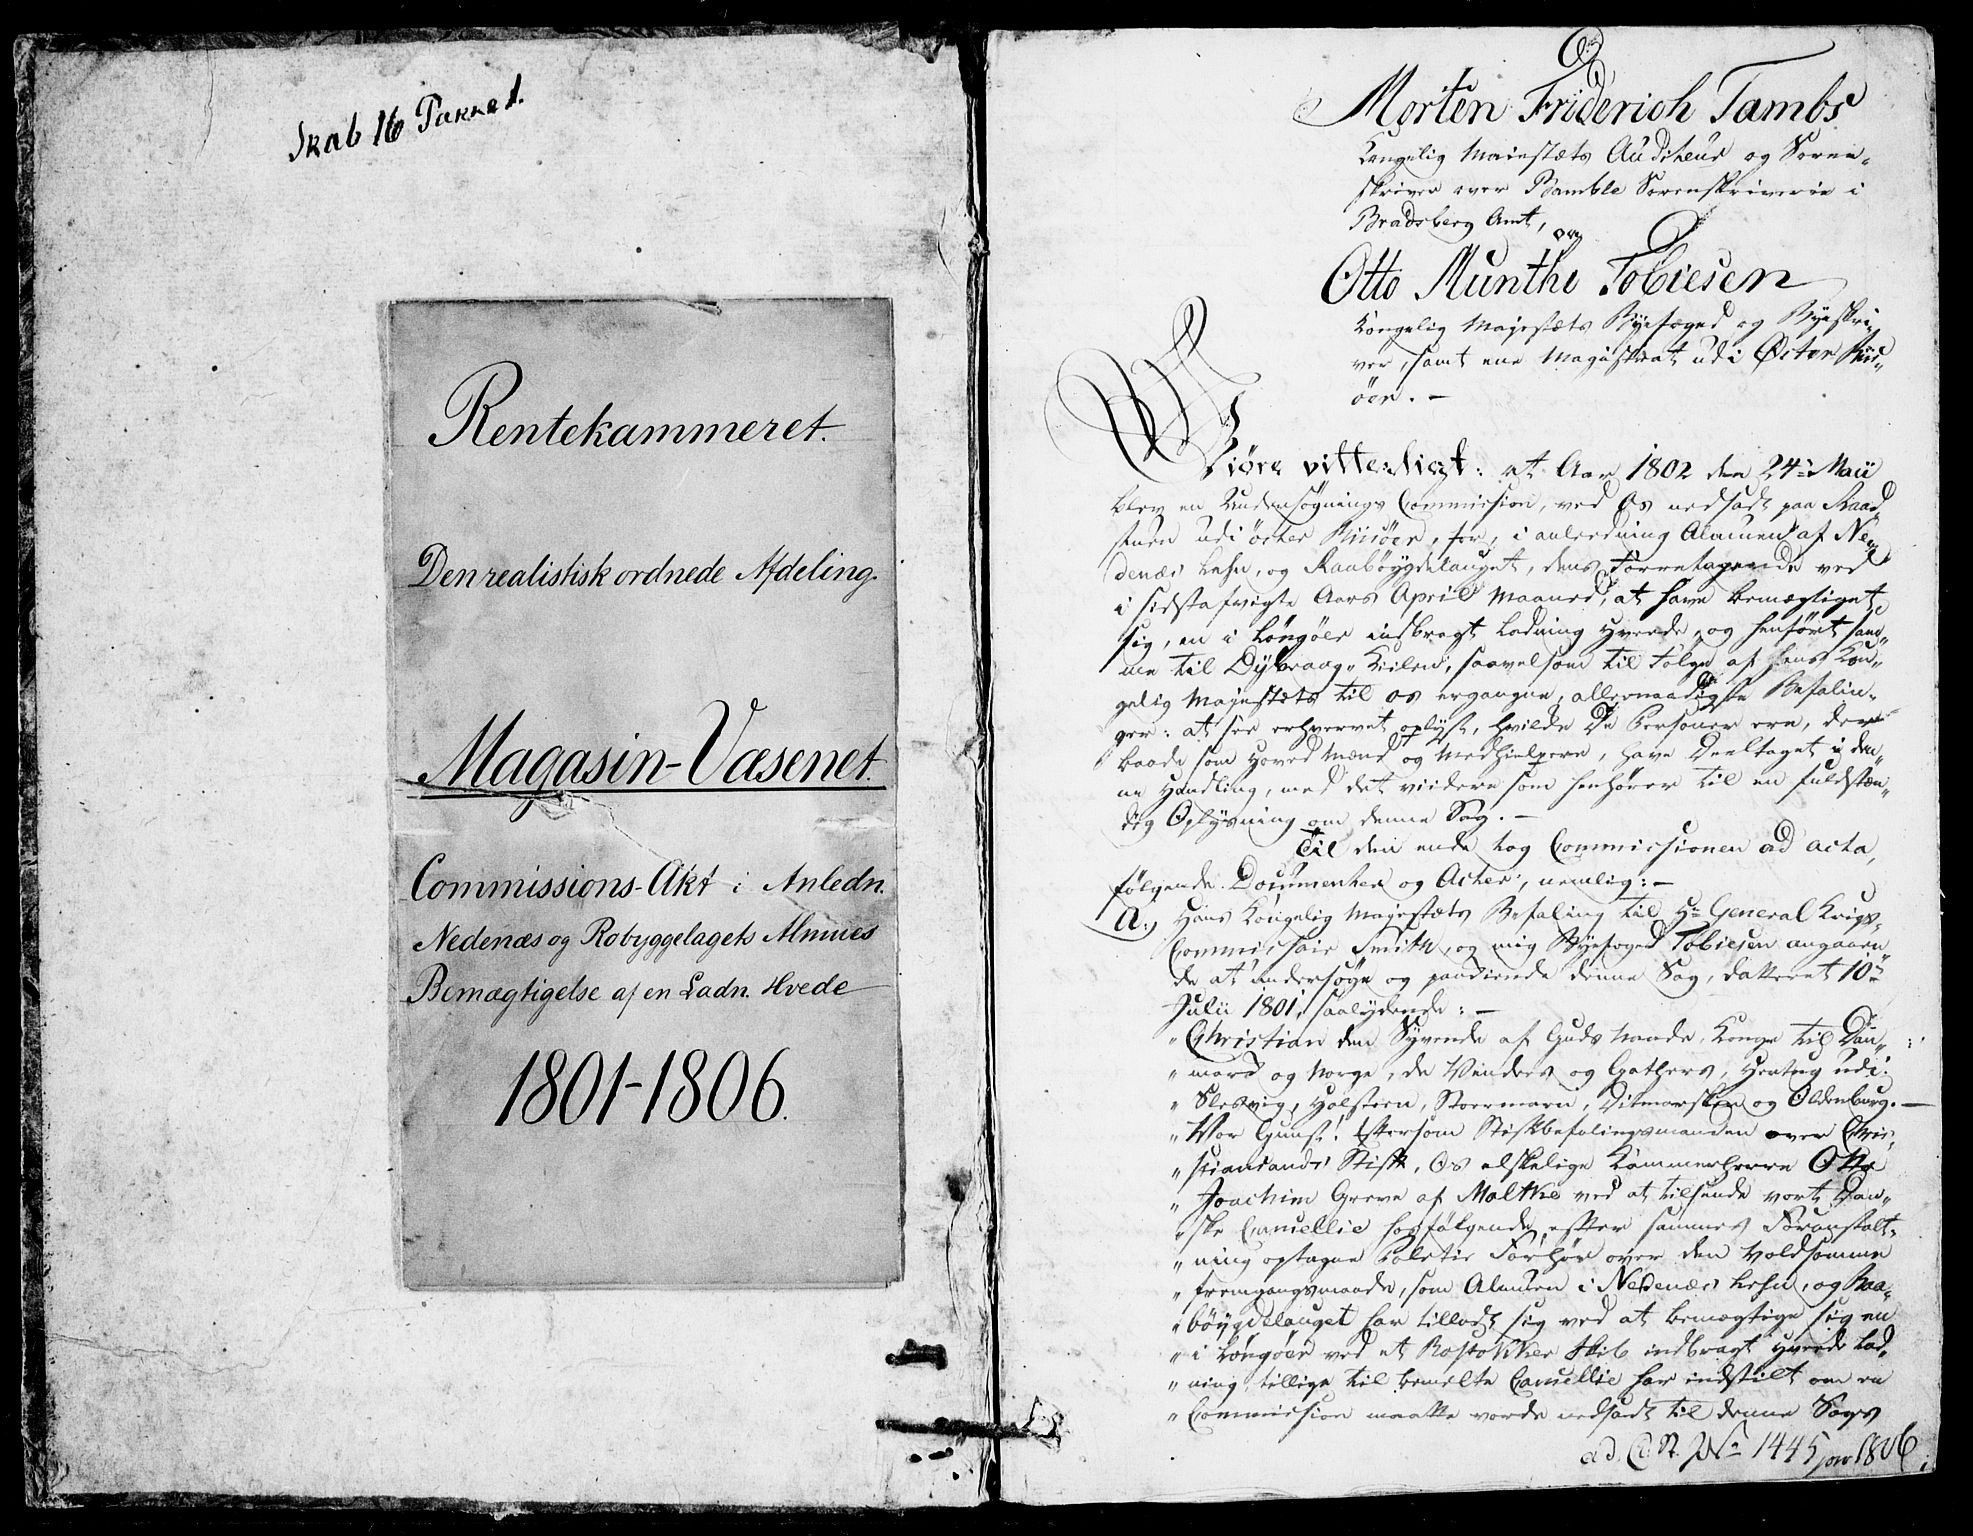 Skab 16 Pakke 1.
Rentekammeret.
Den realistisk ordnede Afdeling.
Magasin-Væsenet.
Commissions-Akt i Anledn.
Nedenæs og Robyggelagets Almues
Bemægtigelse af en Ladn. Hvede
1801-1806.
Morten Friderich Tambs
Kongelig Maiestæts Auditeur og Soren-
skriver over Bamble Sorenskriverie i
Bradsberg Amt, og
Otto Munthe Tobiesen
Kongelig Majestæts Byefoged og Byeskri-
ver, samt ene Magistrat udi Øster Riis-
öer. —
Giöre vitterligt: at Aar 1802 den 24de Maii
blev en Undersögnings Commission, ved Os nedsadt paa Raad-
stuen udi öster Riisöer, for, i anledning Almuen af Ne-
denæs Lehn, og Raabøygdelauget, dens Foretagende ved
i sidstafvigte Aars April Maaned, at have bemægtiget
sig, en i Longöer indbragt Ladning Hvede, og henfört sam-
me til Dybvaag-Kiilen, saavelsom til Fölge af Hans Kon-
gelig Majestæts til os ergangne, allernaadigste Befalin-
ger: at see erhvervet oplyst, hvilde De Personer ere, der
baade som Hoved Mænd og Medhielpere, have Deeltaget i den-
ne Handling, med det viidere som henhörer til en fuldstæn-
dig Oplysning om denne Sag. —
Til den ende tog Commissionen ad acta,
fölgende Documenter og Acter, nemlig: —
A., Hans Kongelig Majestæts Befaling til Hr General Krigs-
Commissair Smith, og mig Byefoged Tobiesen angaaen-
de at undersöge og paakiende denne Sag, datteret 10de
Julii 1801, saalydende: —
" Christian den Syvende af Guds Naade, Konge til Dan-
" mark og Norge, de Venders og Gothers, Hertug udi
" Slesvig, Holsteen, Stormarn, Ditmarsken og Oldenburg. —
" Vor Gunst! Eftersom Stiftbefalingsmanden over Chri-
" stiansands Stift, Os elskelige Kammerherre Otto
" Joachim Greve af Moltke ved at tilsende vort Dan-
" ske Cancellie hosfölgende, efter sammes Foranstalt-
" ning optagne Politie Forhör over den Voldsomme
" fremgangsmaade, som Almuen i Nedenæs Lehn, og Raa-
" böygdelauget har tilladt sig ved at bemægtige sig en
" i Longöer ved et Rostokker Skib indbragt Hvede Lad-
" ning, tillige til bemelte Cancellie har indstilt om en
" Commission maatte vorde nedsadt til denne Sags
ad No 1445 1806